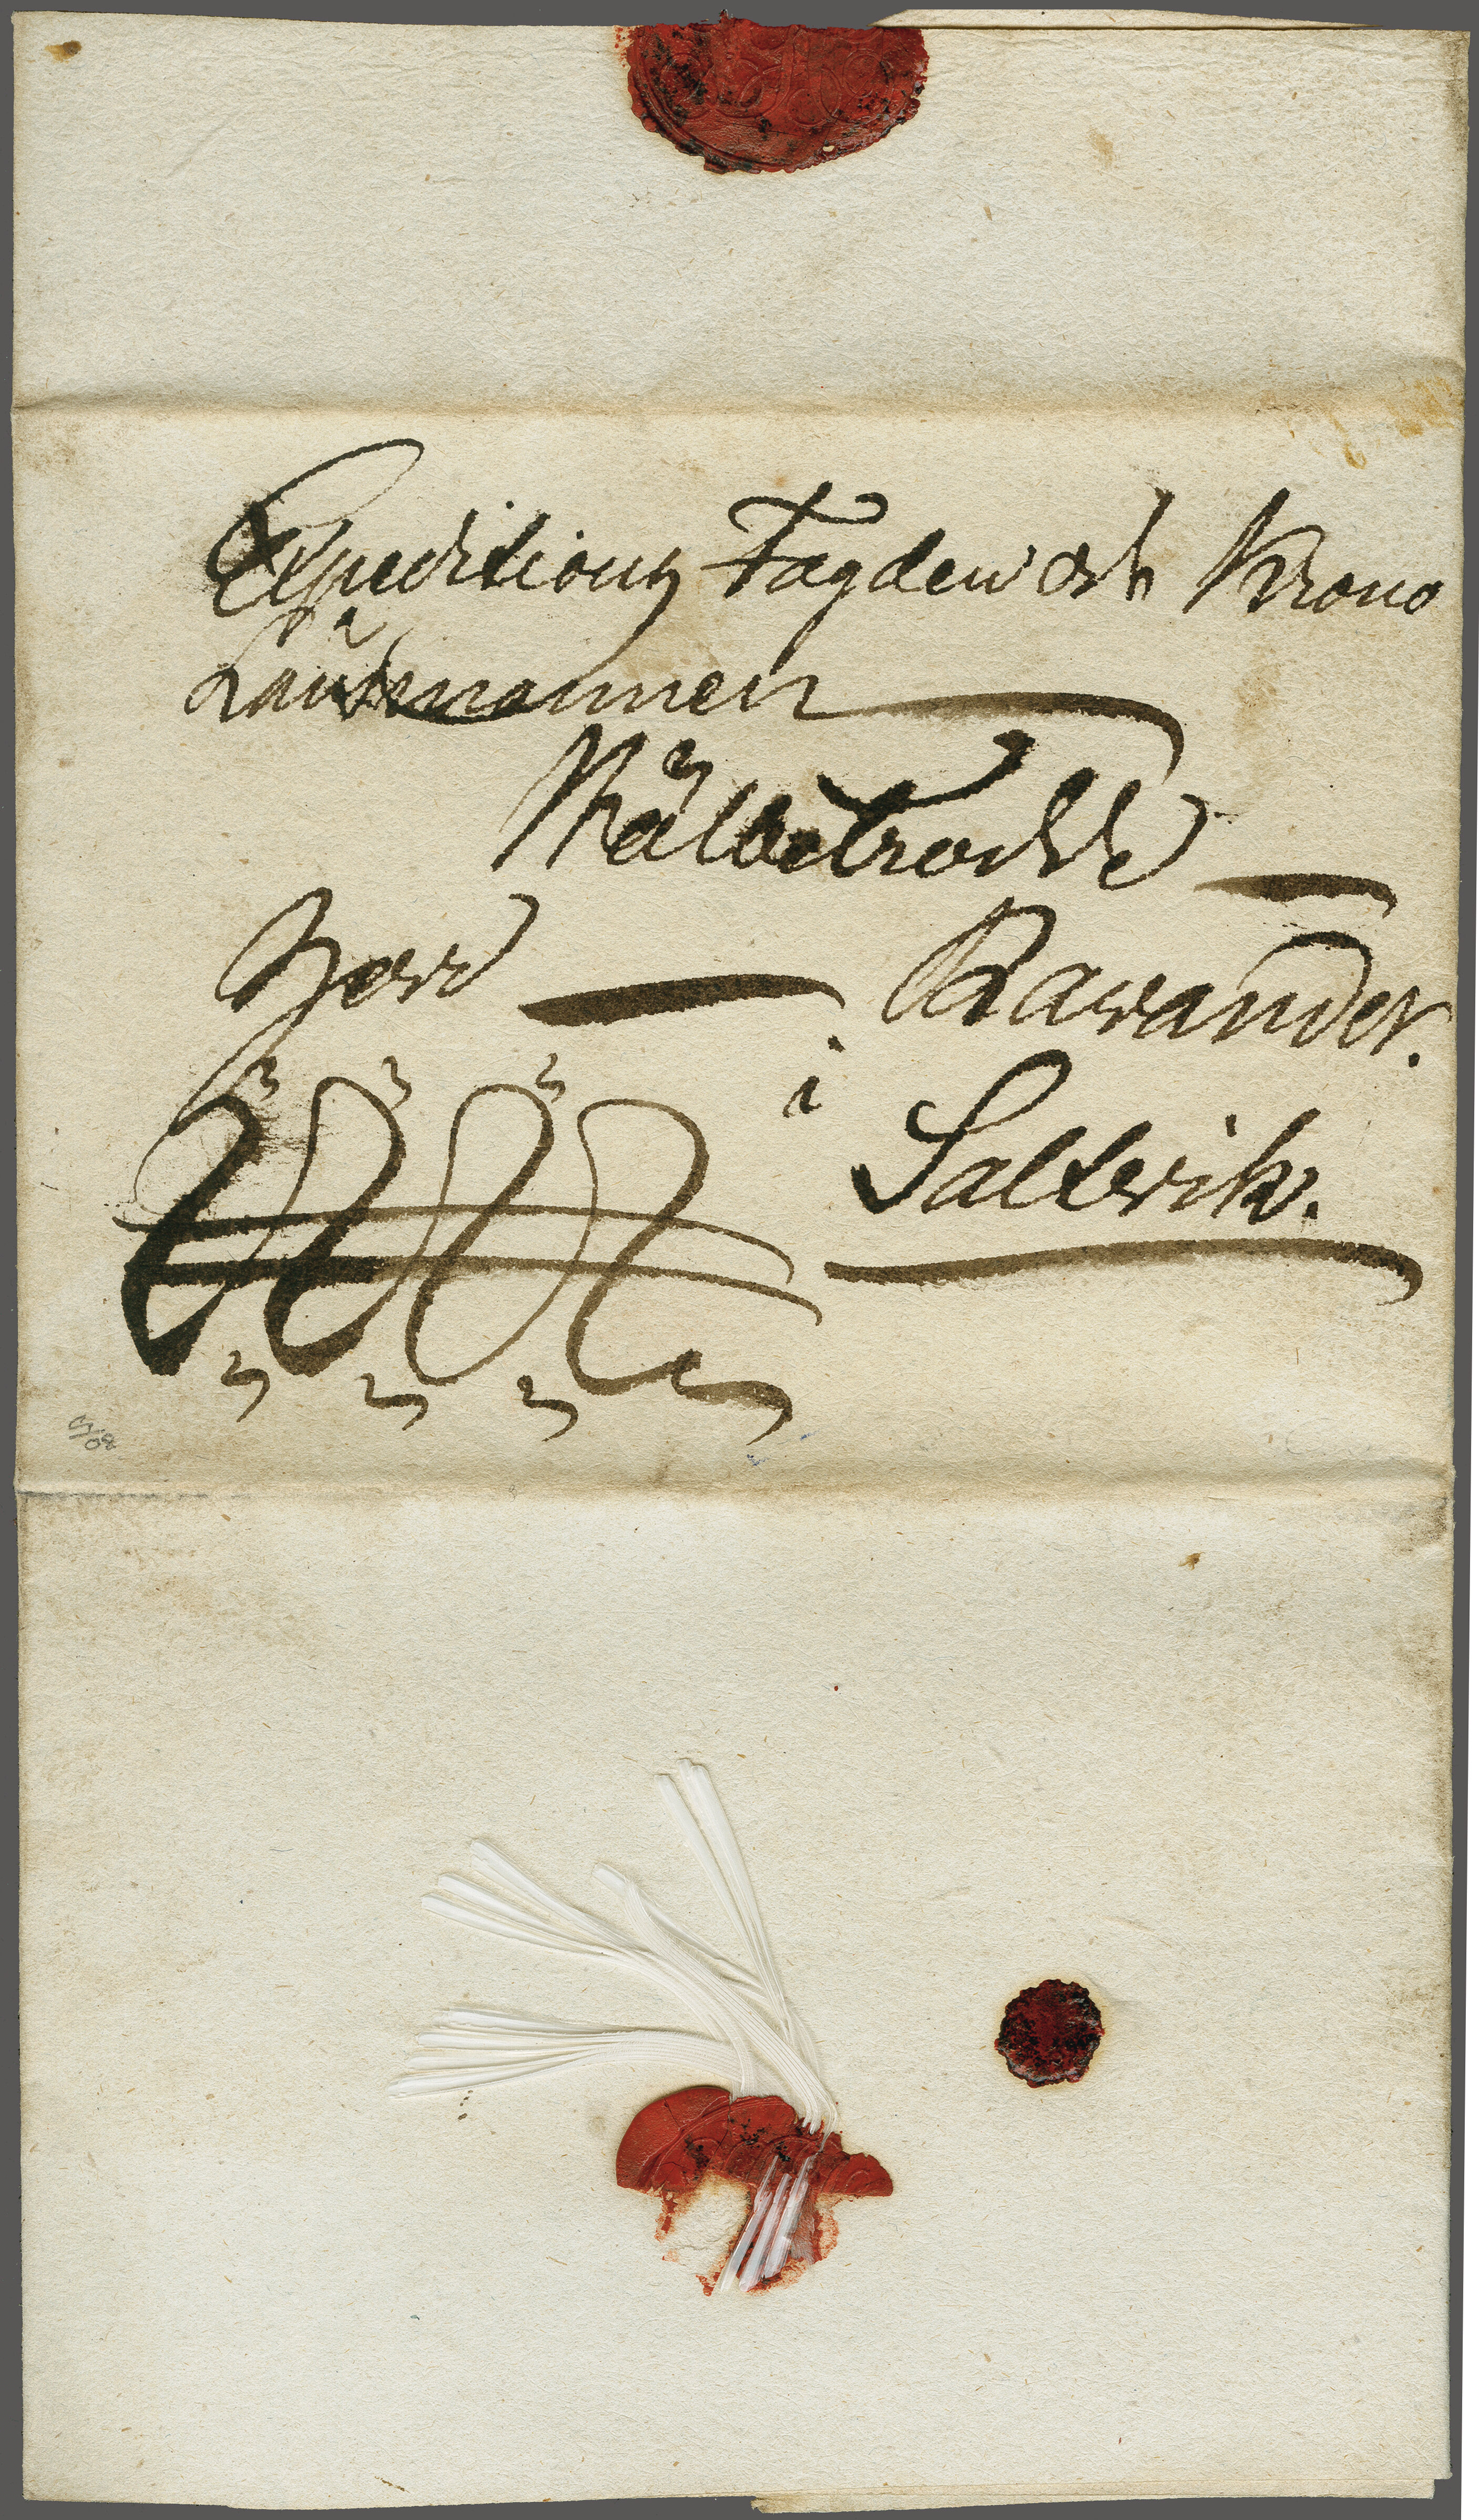 Expeditions Fogden och Krono
Länsmannen
Wälbetrodde
Herr Rawander.
i
Saltvik.